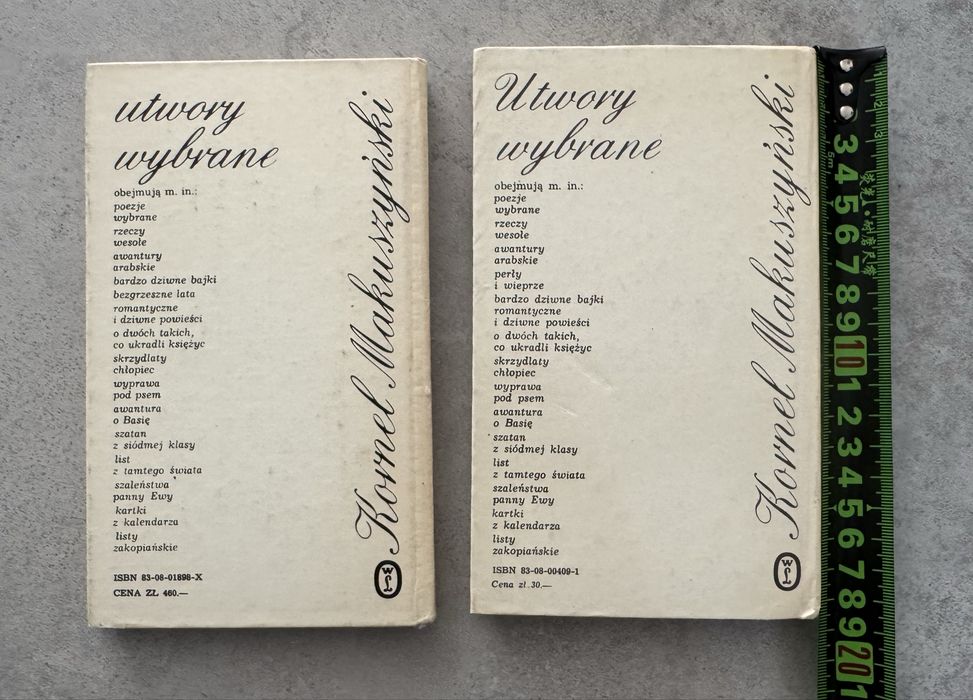 utwory
wybrane
obejmują m. in.:
poezje
wybrane
rzeczy
wesołe
awantury
arabskie
bardzo dziwne bajki
bezgrzeszne lata
romantyczne
i dziwne powieści
o dwóch takich,
co ukradli księżyc
skrzydlaty
chłopiec
wyprawa
pod psem
awantura
o Basię
szatan
z siódmej klasy
list
z tamtego świata
szaleństwa
panny Ewy
kartki
z kalendarza
listy
zakopiańskie
ISBN 83-08-01898-X
CENA ZŁ 460.—
Kornel Makuszyński
WL
Utwory
wybrane
obejmują m. in.:
poezje
wybrane
rzeczy
wesołe
awantury
arabskie
perły
i wieprze
bardzo dziwne bajki
romantyczne
i dziwne powieści
o dwóch takich,
co ukradli księżyc
skrzydlaty
chłopiec
wyprawa
pod psem
awantura
o Basię
szatan
z siódmej klasy
list
z tamtego świata
szaleństwa
panny Ewy
kartki
z kalendarza
listy
zakopiańskie
ISBN 83-08-00409-1
Cena zł 30.—
Kornel Makuszyński
WL
3 4 5 6 7 8 9 10 1 2 3 4 5 6 7 8 9 20 1
5m